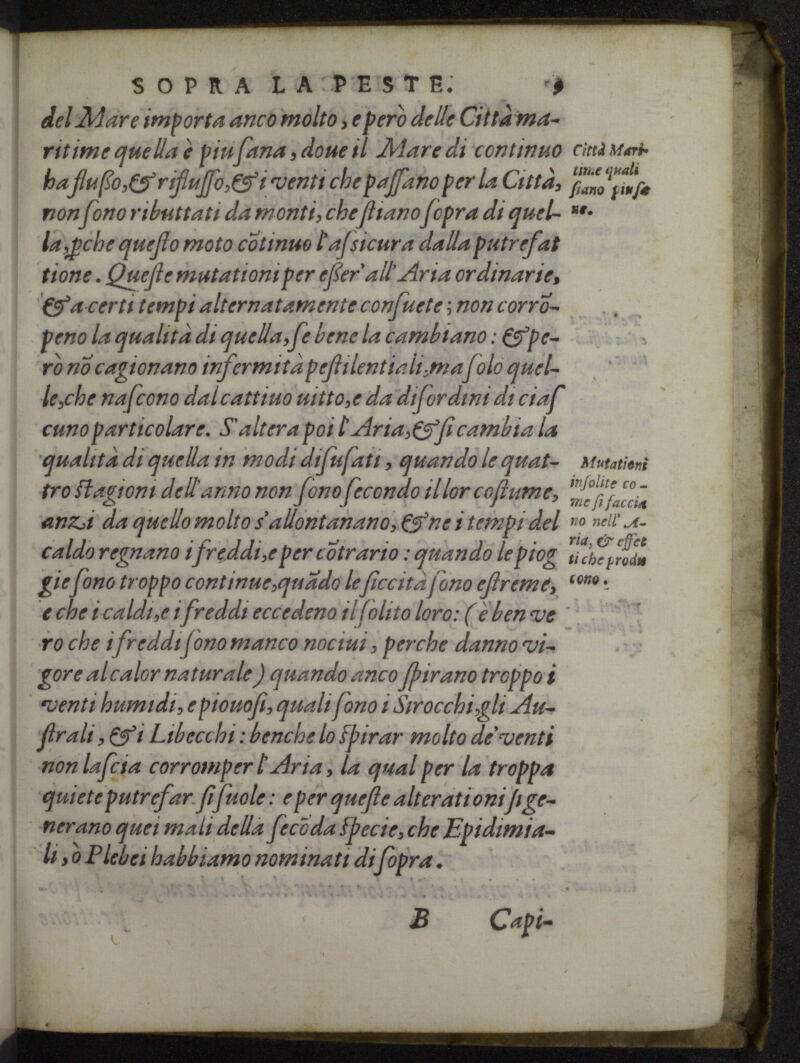 SOPRA LA PESTE. 9
del Mare importa anco molto, e però delle Città ma-
ritime quella è piu ſana, doue il Mare di continuo
ha fluſſo, & rifluſſo, & i venti che paſſano per la Città,
non ſono ributtati da monti, che ſtiano ſopra di quel-
la, ꝑche queſto moto cõtinuo l'aſsicura dalla putrefat
tione. Queſte mutationi per eſſer' all' Aria ordinarie,
& a certi tempi alternatamente conſuete; non corrõ-
peno la qualità di quella, ſe bene la cambiano: & pe-
rò nõ cagionano infermità peſtilentiali, ma ſolo quel-
le, che naſcono dal cattiuo uitto, e da diſordini di ciaſ
cuno particolare. S'altera poi l'Aria, & ſi cambia la
qualità di quella in modi diſuſati, quando le quat-
tro ſtagioni dell'anno non ſono ſecondo il lor coſtume,
anzi da quello molto s'allontanano, & ne i tempi del
caldo regnano i freddi, e per cõtrario: quando le piog
gie ſono troppo continue, quãdo le ſiccità ſono eſtreme,
e che i caldi, e i freddi eccedeno il ſolito loro: (è ben ve
ro che i freddi ſono manco nociui, perche danno vi-
gore al calor naturale) quando anco ſpirano troppo i
venti humidi, e piouoſi, quali ſono i Sirocchi, gli Au-
ſtrali, & i Libecchi: benche lo ſpirar molto de' venti
non laſcia corromper l'Aria, la qual per la troppa
quiete putrefar ſi ſuole: e per queſte alterationi ſi ge-
nerano quei mali della ſecõda ſpecie, che Epidimia-
li, ò Plebei habbiamo nominati di ſopra.
B Capi-
Città Mari-
time quali
ſiano piu ſa
ne.
Mutationi
inſolite co-
me ſi faccia
no nell' A-
ria, & effet
ti che produ
cono.